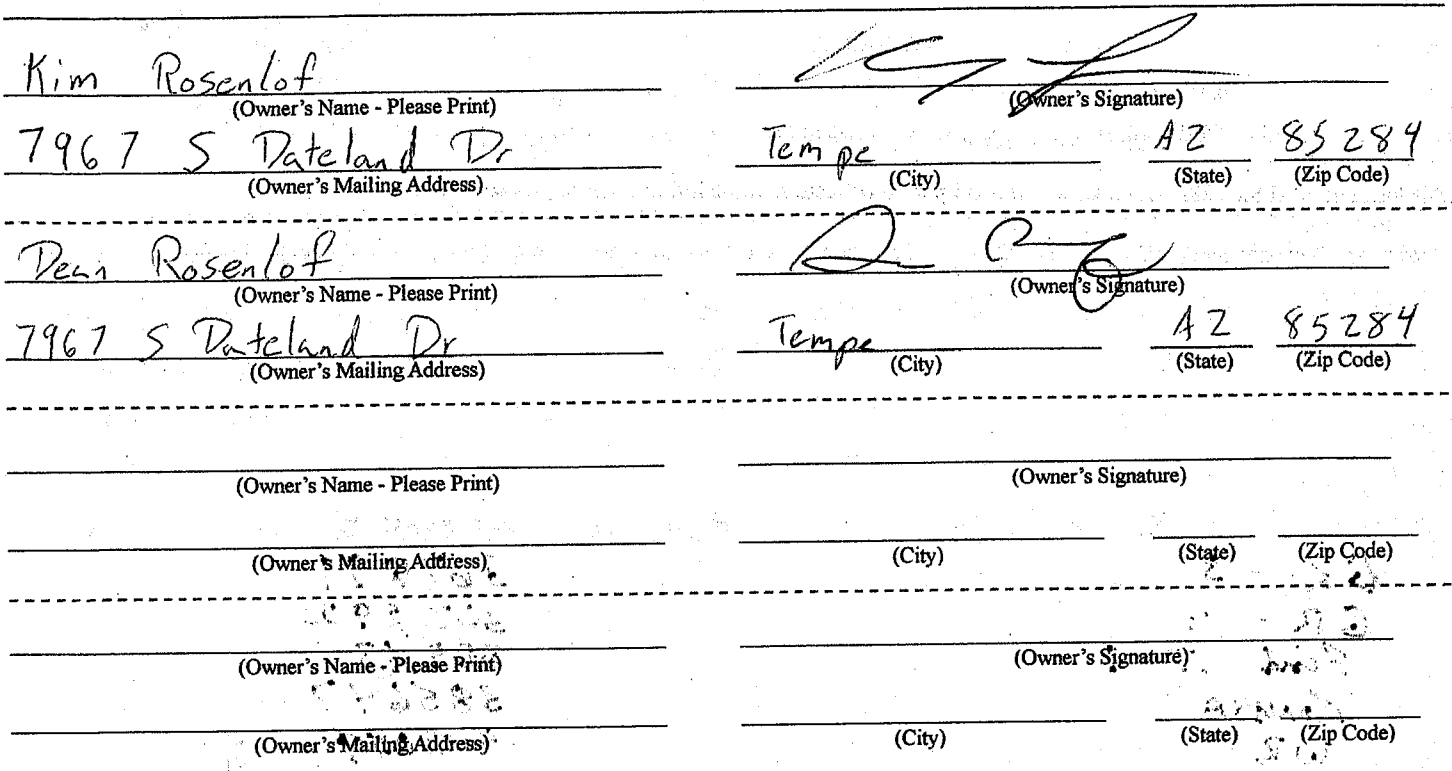 Kim Rosenlof
(Owner's Name - Please Print) (Owner's Signature)
7967 S Dateland Dr Tempe AZ 85284
(Owner's Mailing Address) (City) (State) (Zip Code)
Dean Rosenlof
(Owner's Name - Please Print) (Owner's Signature)
7967 S Dateland Dr Tempe AZ 85284
(Owner's Mailing Address) (City) (State) (Zip Code)
(Owner's Name - Please Print) (Owner's Signature)
(Owner's Mailing Address) (City) (State) (Zip Code)
(Owner's Name - Please Print) (Owner's Signature)
(Owner's Mailing Address) (City) (State) (Zip Code)